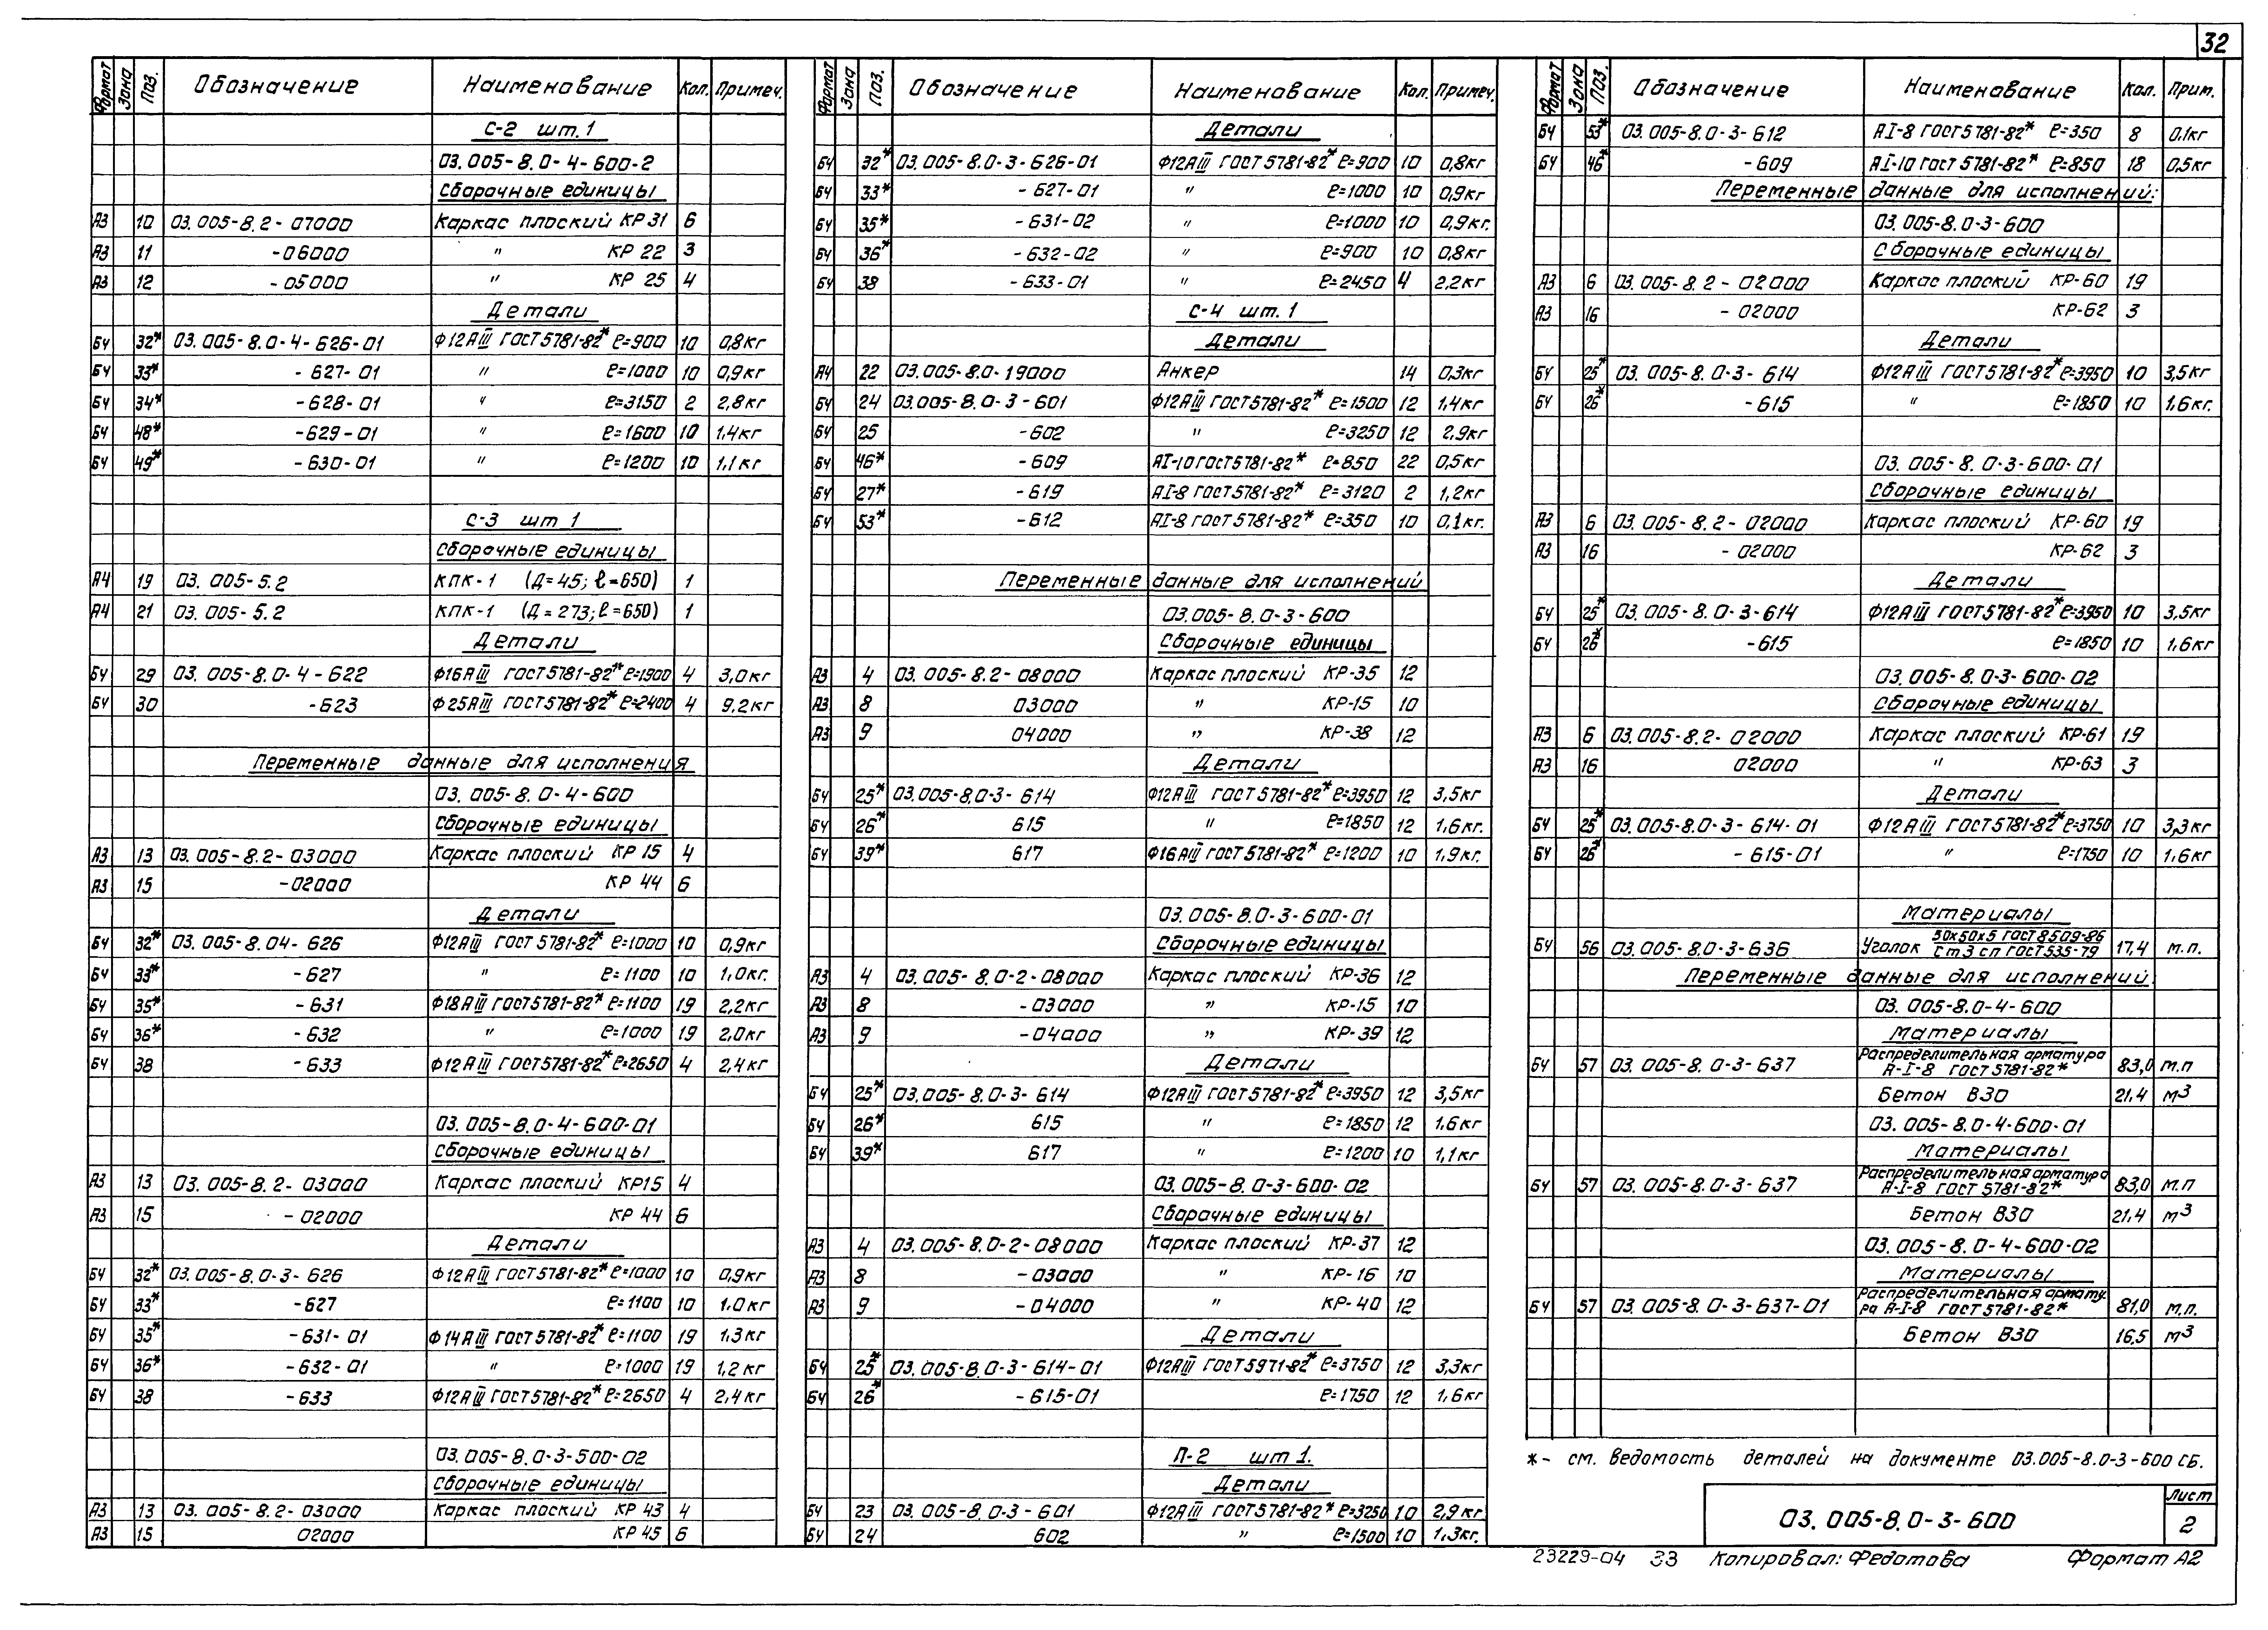 32
Формат Зона Поз. Обозначение Наименование Кол. Примеч.
С-2 шт. 1
03.005-8.0-4-600-2
Сборочные единицы
А3 10 03.005-8.2-07000 Каркас плоский КР 31 6
А3 11 -06000 " КР 22 3
А3 12 -05000 " КР 25 4
Детали
БЧ 32* 03.005-8.0-4-626-01 Ф12АIII ГОСТ 5781-82* ℓ=900 10 0,8кг
БЧ 33* -627-01 " ℓ=1000 10 0,9кг
БЧ 34* -628-01 " ℓ=3150 2 2,8кг
БЧ 48* -629-01 " ℓ=1600 10 1,4кг
БЧ 49* -630-01 " ℓ=1200 10 1,1кг
С-3 шт 1
Сборочные единицы
А4 19 03.005-5.2 КПК-1 (Д=45; ℓ=650) 1
А4 21 03.005-5.2 КПК-1 (Д=273; ℓ=650) 1
Детали
БЧ 29 03.005-8.0-4-622 Ф16АIII ГОСТ 5781-82* ℓ=1900 4 3,0кг
БЧ 30 -623 Ф25АIII ГОСТ 5781-82* ℓ=2400 4 9,2кг
Переменные данные для исполнения
03.005-8.0-4-600
Сборочные единицы
А3 13 03.005-8.2-03000 Каркас плоский КР 15 4
А3 15 -02000 КР 44 6
Детали
БЧ 32* 03.005-8.04-626 Ф12АIII ГОСТ 5781-82* ℓ=1000 10 0,9кг
БЧ 33* -627 " ℓ=1100 10 1,0кг.
БЧ 35* -631 Ф18АIII ГОСТ 5781-82* ℓ=1100 19 2,2кг
БЧ 36* -632 " ℓ=1000 19 2,0кг
БЧ 38 -633 Ф12АIII ГОСТ 5781-82* ℓ=2650 4 2,4кг
03.005-8.0-4-600-01
Сборочные единицы
А3 13 03.005-8.2-03000 Каркас плоский КР15 4
А3 15 -02000 КР 44 6
Детали
БЧ 32* 03.005-8.0-3-626 Ф12АIII ГОСТ 5781-82* ℓ=1000 10 0,9кг
БЧ 33* -627 ℓ=1100 10 1.0кг
БЧ 35* -631-01 Ф14АIII ГОСТ 5781-82* ℓ=1100 19 1.3кг
БЧ 36* -632-01 " ℓ=1000 19 1,2кг
БЧ 38 -633 Ф12АIII ГОСТ 5781-82* ℓ=2650 4 2,4кг
03.005-8.0-3-500-02
Сборочные единицы
А3 13 03.005-8.2-03000 Каркас плоский КР 43 4
А3 15 02000 КР 45 6
Формат Зона Поз. Обозначение Наименование Кол. Примеч.
Детали
БЧ 32* 03.005-8.0-3-626-01 Ф12АIII ГОСТ 5781-82* ℓ=900 10 0,8кг
БЧ 33* -627-01 " ℓ=1000 10 0,9кг
БЧ 35* -631-02 " ℓ=1000 10 0,9кг.
БЧ 36* -632-02 " ℓ=900 10 0,8кг
БЧ 38 -633-01 " ℓ=2450 4 2.2кг
С-4 шт. 1
Детали
А4 22 03.005-8.0-19000 Анкер 14 0,3кг
БЧ 24 03.005-8.0-3-601 Ф12АIII ГОСТ 5781-82* ℓ=1500 12 1,4кг
БЧ 25 -602 " ℓ=3250 12 2,9кг
БЧ 46* -609 АI-10 ГОСТ 5781-82* ℓ=850 22 0,5кг
БЧ 27* -619 АI-8 ГОСТ 5781-82* ℓ=3120 2 1,2кг
БЧ 53* -612 АI-8 ГОСТ 5781-82* ℓ=350 10 0,1кг.
Переменные данные для исполнений
03.005-8.0-3-600
Сборочные единицы
А3 4 03.005-8.2-08000 Каркас плоский КР-35 12
А3 8 03000 " КР-15 10
А3 9 04000 " КР-38 12
Детали
БЧ 25* 03.005-8.0-3-614 Ф12АIII ГОСТ 5781-82* ℓ=3950 12 3,5кг
БЧ 26* 615 " ℓ=1850 12 1,6кг.
БЧ 39* 617 Ф16АIII ГОСТ 5781-82* ℓ=1200 10 1,9кг.
03.005-8.0-3-600-01
Сборочные единицы
А3 4 03.005-8.0-2-08000 Каркас плоский КР-36 12
А3 8 -03000 " КР-15 10
А3 9 -04000 " КР-39 12
Детали
БЧ 25* 03.005-8.0-3-614 Ф12АIII ГОСТ 5781-82* ℓ=3950 12 3,5кг
БЧ 26* 615 " ℓ=1850 12 1.6кг
БЧ 39* 617 " ℓ=1200 10 1,1кг
03.005-8.0-3-600-02
Сборочные единицы
А3 4 03.005-8.0-2-08000 Каркас плоский КР-37 12
А3 8 -03000 " КР-16 10
А3 9 -04000 " КР-40 12
Детали
БЧ 25* 03.005-8.0-3-614-01 Ф12АIII ГОСТ 5971-82* ℓ=3750 12 3,3кг
БЧ 26* -615-01 ℓ=1750 12 1,6кг
П-2 шт 1.
Детали
БЧ 23 03.005-8.0-3-601 Ф12АIII ГОСТ 5781-82* ℓ=3250 10 2,9кг.
БЧ 24 602 " ℓ=1500 10 1,3кг.
Формат Зона Поз. Обозначение Наименование Кол. Прим.
БЧ 53* 03.005-8.0-3-612 АI-8 ГОСТ 5781-82* ℓ=350 8 0.1кг
БЧ 46* -609 АI-10 ГОСТ 5781-82* ℓ=850 18 0.5кг
Переменные данные для исполнений:
03.005-8.0-3-600
Сборочные единицы
А3 6 03.005-8.2-02000 Каркас плоский КР-60 19
А3 16 -02000 КР-62 3
Детали
БЧ 25* 03.005-8.0-3-614 Ф12АIII ГОСТ 5781-82* ℓ=3950 10 3,5кг
БЧ 26* -615 " ℓ=1850 10 1,6кг.
03.005-8.0-3-600-01
Сборочные единицы
А3 6 03.005-8.2-02000 Каркас плоский КР-60 19
А3 16 -02000 КР-62 3
Детали
БЧ 25* 03.005-8.0-3-614 Ф12АIII ГОСТ 5781-82* ℓ=3950 10 3,5кг
БЧ 26* -615 ℓ=1850 10 1,6кг
03.005-8.0-3-600-02
Сборочные единицы
А3 6 03.005-8.2-02000 Каркас плоский КР-61 19
А3 16 02000 " КР-63 3
Детали
БЧ 25* 03.005-8.0-3-614-01 Ф12АIII ГОСТ 5781-82* ℓ=3750 10 3,3кг
БЧ 26* -615-01 " ℓ=1750 10 1,6кг
Материалы
БЧ 56 03.005-8.0-3-636 Уголок 50х50х5 ГОСТ 8509-86 17,4 м.п.
Ст3 сп ГОСТ 535-79
Переменные данные для исполнений
03.005-8.0-4-600
Материалы
БЧ 57 03.005-8.0-3-637 Распределительная арматура 83,0 м.п
А-I-8 ГОСТ 5781-82*
Бетон В30 21,4 м³
03.005-8.0-4-600-01
Материалы
БЧ 57 03.005-8.0-3-637 Распределительная арматура 83,0 м.п
А-I-8 ГОСТ 5781-82*
Бетон В30 21,4 м³
03.005-8.0-4-600-02
Материалы
БЧ 57 03.005-8.0-3-637-01 Распределительная армату- 81,0 м.п.
ра А-I-8 ГОСТ 5781-82*
Бетон В30 16,5 м³
*- см. ведомость деталей на документе 03.005-8.0-3-600 СБ.
03.005-8.0-3-600
Лист
2
23229-04 33 Копировал: Федотова Формат А2